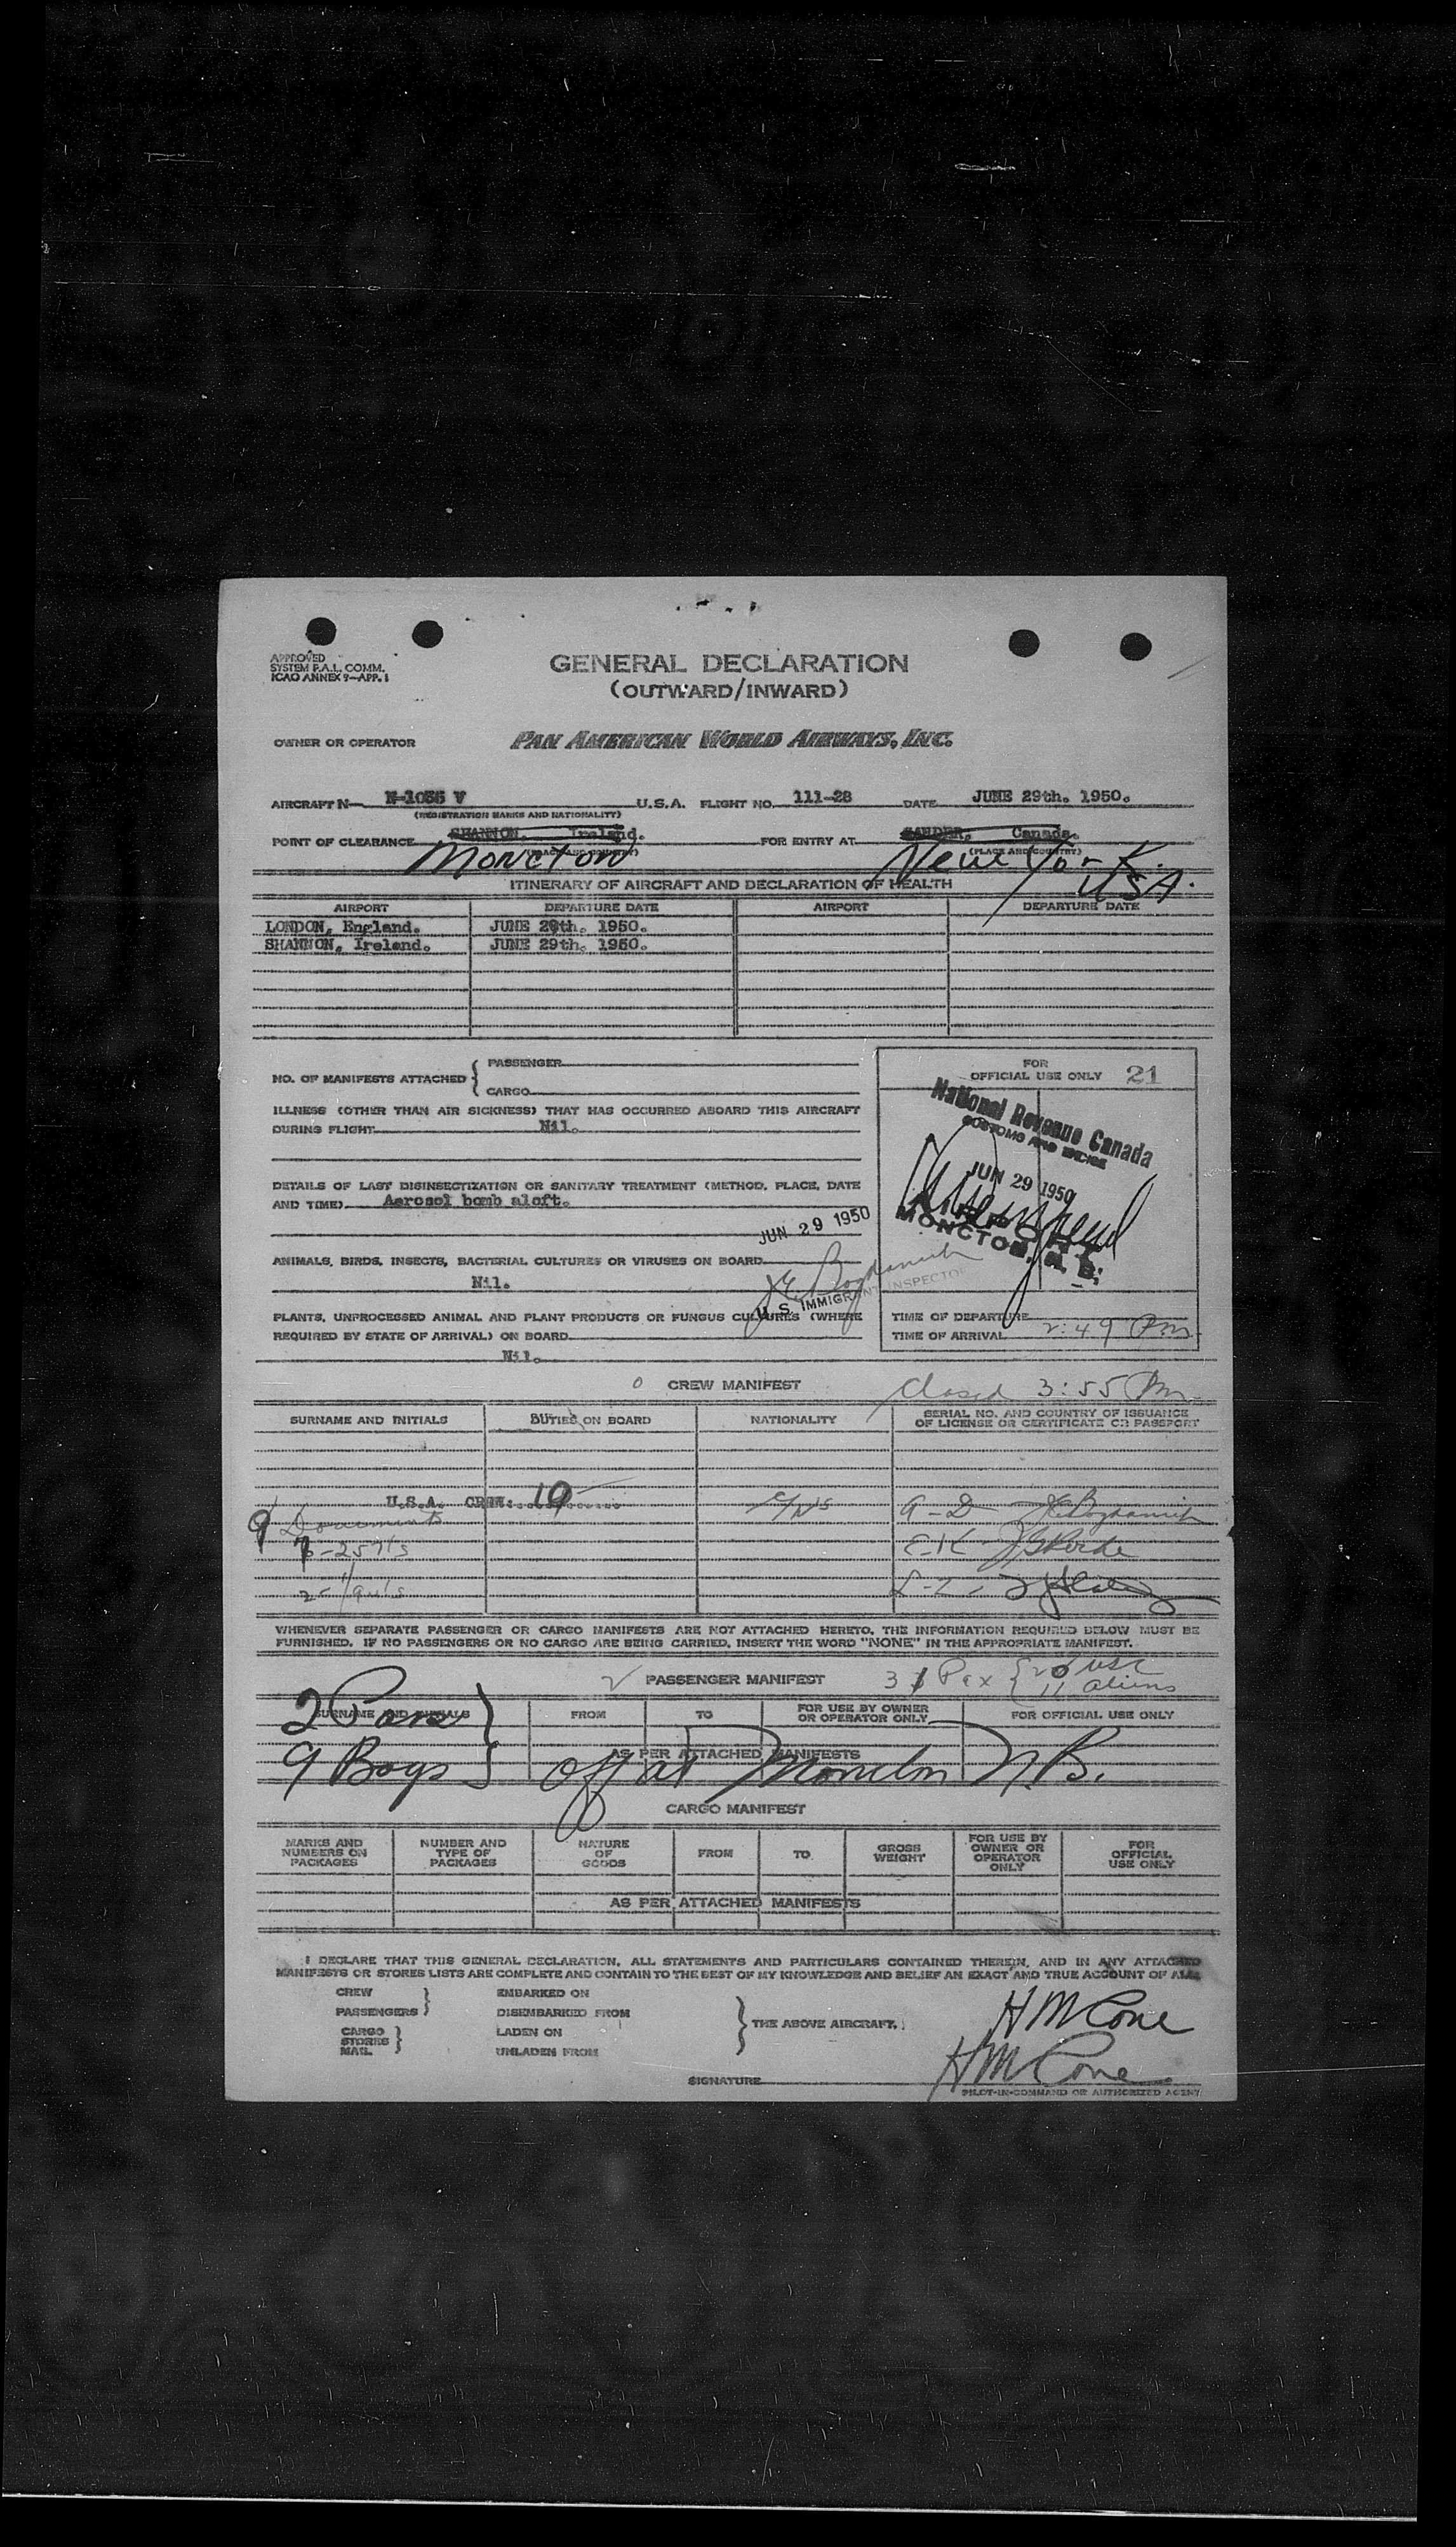 APPROVED
SYSTEM P.A.L. COMM.
ICAO ANNEX 9—APP. 1
GENERAL DECLARATION
(OUTWARD/INWARD)
OWNER OR OPERATOR PAN AMERICAN WORLD AIRWAYS, INC.
AIRCRAFT N— U.S.A. FLIGHT NO. 111-28 DATE JUNE 29th. 1950.
(REGISTRATION MARKS AND NATIONALITY)
POINT OF CLEARANCE SHANNON, Ireland. FOR ENTRY AT Canada.
(PLACE AND COUNTRY)
Moncton New York. USA.
ITINERARY OF AIRCRAFT AND DECLARATION OF HEALTH
AIRPORT DEPARTURE DATE AIRPORT DEPARTURE DATE
LONDON, England. JUNE 1950.
SHANNON, Ireland. JUNE 29th. 1950.
NO. OF MANIFESTS ATTACHED { PASSENGER
CARGO
FOR
OFFICIAL USE ONLY 21
National Revenue Canada
CUSTOMS AND EXCISE
JUN 29 1950
AIRPORT
MONCTON, N. B.
ILLNESS (OTHER THAN AIR SICKNESS) THAT HAS OCCURRED ABOARD THIS AIRCRAFT
DURING FLIGHT Nil.
DETAILS OF LAST DISINSECTIZATION OR SANITARY TREATMENT (METHOD, PLACE, DATE
AND TIME) Aerosol bomb aloft.
JUN 29 1950
ANIMALS, BIRDS, INSECTS, BACTERIAL CULTURES OR VIRUSES ON BOARD
Nil.
U. S. IMMIGRANT INSPECTOR
PLANTS, UNPROCESSED ANIMAL AND PLANT PRODUCTS OR FUNGUS CULTURES (WHERE
REQUIRED BY STATE OF ARRIVAL) ON BOARD
Nil.
TIME OF DEPARTURE
TIME OF ARRIVAL 2:49 Pm
CREW MANIFEST Closed 3:55 Pm
SURNAME AND INITIALS DUTIES ON BOARD NATIONALITY SERIAL NO. AND COUNTRY OF ISSUANCE
OF LICENSE OR CERTIFICATE OR PASSPORT
U.S.A. CREW: 10
9 Documents
WHENEVER SEPARATE PASSENGER OR CARGO MANIFESTS ARE NOT ATTACHED HERETO, THE INFORMATION REQUIRED BELOW MUST BE
FURNISHED. IF NO PASSENGERS OR NO CARGO ARE BEING CARRIED, INSERT THE WORD "NONE" IN THE APPROPRIATE MANIFEST.
PASSENGER MANIFEST 31 Pax { 20 USC
11 aliens
SURNAME AND INITIALS FROM TO FOR USE BY OWNER
OR OPERATOR ONLY FOR OFFICIAL USE ONLY
AS PER ATTACHED MANIFESTS
2 Pass }
9 Bags } off at Moncton N.B.
CARGO MANIFEST
MARKS AND
NUMBERS ON
PACKAGES
NUMBER AND
TYPE OF
PACKAGES
NATURE
OF
GOODS
FROM
TO
GROSS
WEIGHT
FOR USE BY
OWNER OR
OPERATOR
ONLY
FOR
OFFICIAL
USE ONLY
AS PER ATTACHED MANIFESTS
I DECLARE THAT THIS GENERAL DECLARATION, ALL STATEMENTS AND PARTICULARS CONTAINED THEREIN, AND IN ANY ATTACHED
MANIFESTS OR STORES LISTS ARE COMPLETE AND CONTAIN TO THE BEST OF MY KNOWLEDGE AND BELIEF AN EXACT AND TRUE ACCOUNT OF ALL
CREW EMBARKED ON
PASSENGERS DISEMBARKED FROM
CARGO LADEN ON
STORES
MAIL UNLADEN FROM
THE ABOVE AIRCRAFT.
H M Cone
SIGNATURE H M Cone
PILOT-IN-COMMAND OR AUTHORIZED AGENT